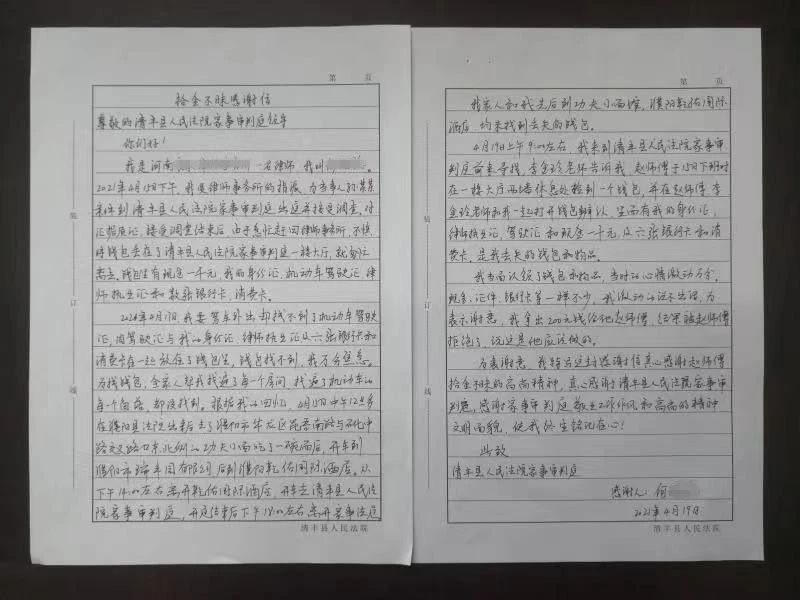 第 页
拾金不昧感谢信
尊敬的清丰县人民法院家事审判庭领导
你们好！
我是河南 一名律师，我叫 。
2021年4月15日下午，我受律师事务所的指派，为当事人孙某某
案件到清丰县人民法院家事审判庭出庭并接受调查、对
证据质证，接受调查结束后，由于急忙赶回律师事务所，不慎
将钱包丢在了清丰县人民法院家事审判庭一楼大厅，就匆忙
离去。钱包里有现金一千元，我的身份证，机动车驾驶证 律
师执业证和数张银行卡、消费卡。
2021年4月 日，我要驾车外出却找不到了机动车驾驶
证，因驾驶证与我的身份证、律师执业证及六张银行卡和
消费卡在一起放在了钱包里，钱包找不到，我万分焦急。
为找钱包，全家人帮我找遍了每一个房间，找遍了机动车的
每一个角落，都没找到。根据我的回忆，4月15日中午12点多
在濮阳县法院出来后去了濮阳市华龙区昆吾南路与石化中
路交叉路口东，北侧的功夫小面吃了一碗面后，开车到
濮阳市 有限公司，后到濮阳乾佑国际酒店。从
下午14:00左右离开乾佑国际酒店，开车去清丰县人民法
院家事审判庭，开庭结束后下午18:00左右离开家事法庭
清丰县人民法院
第 页
我家人和我先后到功夫小面馆，濮阳乾佑国际
酒店，均未找到丢失的钱包。
4月19日上午9:00左右，我来到清丰县人民法院家事审
判庭前来寻找，李 老师告诉我，赵师傅于15日下班时
在一楼大厅西墙休息处捡到一个钱包，并在赵师傅、李
老师和我一起打开钱包辨认，里面有我的身份证，
律师执业证，驾驶证 和现金一千元，及六张银行卡和消
费卡，是我丢失的钱包和物品。
我当面认领了钱包和物品，当时的心情激动万分，
现金、证件、银行卡等一样不少，我激动的说不出话，为
表示谢意，我拿出200元钱给他赵师傅，结果被赵师傅
拒绝了，说这是他应该做的。
为表谢意，我特写这封感谢信真心感谢赵师傅
拾金不昧的高尚精神，真心感谢清丰县人民法院家事审
判庭，感谢家事审判庭敬业工作作风和高尚的精神
文明面貌，使我终生铭记在心！
此致
清丰县人民法院家事审判庭
感谢人：何
2021年4月19日
清丰县人民法院
装
订
线
装
订
线